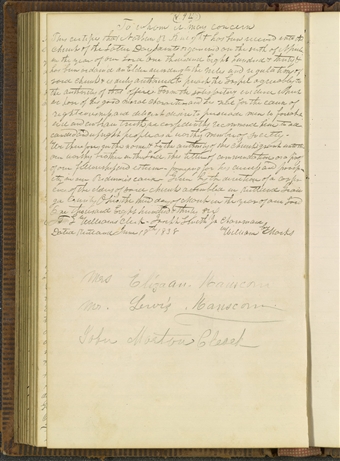 (94)
To whom it may concern
This certifies that Nathan B Baldwin has been received into the
church of the Latter Day Saints organized on the sixth of April
in the year of our Lord One thousand Eight hundred & thirty &
has been ordained an Elder according to the rules and regulations of
said church & is duly authorised to preach the Gospel agreeably to
the authority of that office From the satisfactory evidence which
we have of his good moral character and his zeal for the cause of
righteousness and diligent desire to persuade men to forsake
evil and embrace truth we confidently recommend him to all
candid and upright people as a worthy member of society.
We Therefore in the name & by the authority of this church grant unto this
our worthy brother in the Lord this letter of commendation as a proof
of our fellowship and esteem praying for his success and prosper-
ity in our Redeemer's cause Given by the direction of a confer-
ence of the elders of said church assembled in Kirtland Geauga
County Ohio the third day of March in the year of our Lord
One thousand Eight hundred & thirty six
F G Williams Clerk Joseph Smith Jr Chairman
Dated Kirtland June 18th 1838
William Marks
Mrs Hanscom
Mr. Lewis Hanscom
John Morton Clerk